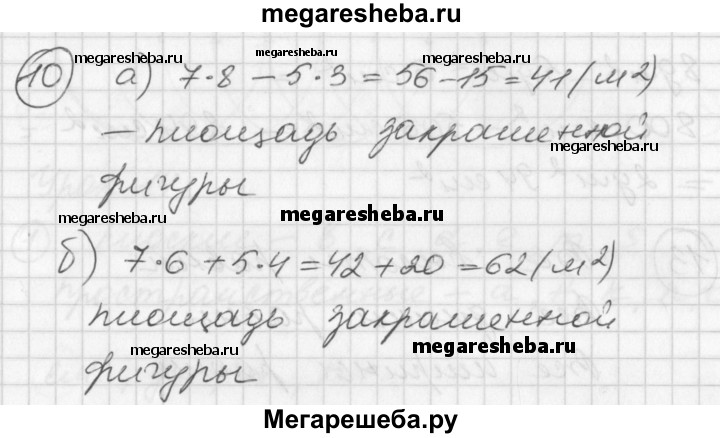 megaresheba.ru
megaresheba.ru
10 а) 7·8 – 5·3 = 56 – 15 = 41 (м²)
megaresheba.ru
megaresheba.ru
– площадь закрашенной
megaresheba.ru
фигуры
megaresheba.ru
megaresheba.ru
б) 7·6 + 5·4 = 42 + 20 = 62 (м²)
megaresheba.ru
площадь закрашенной
megaresheba.ru
megaresheba.ru
фигуры
Мегарешеба.ру